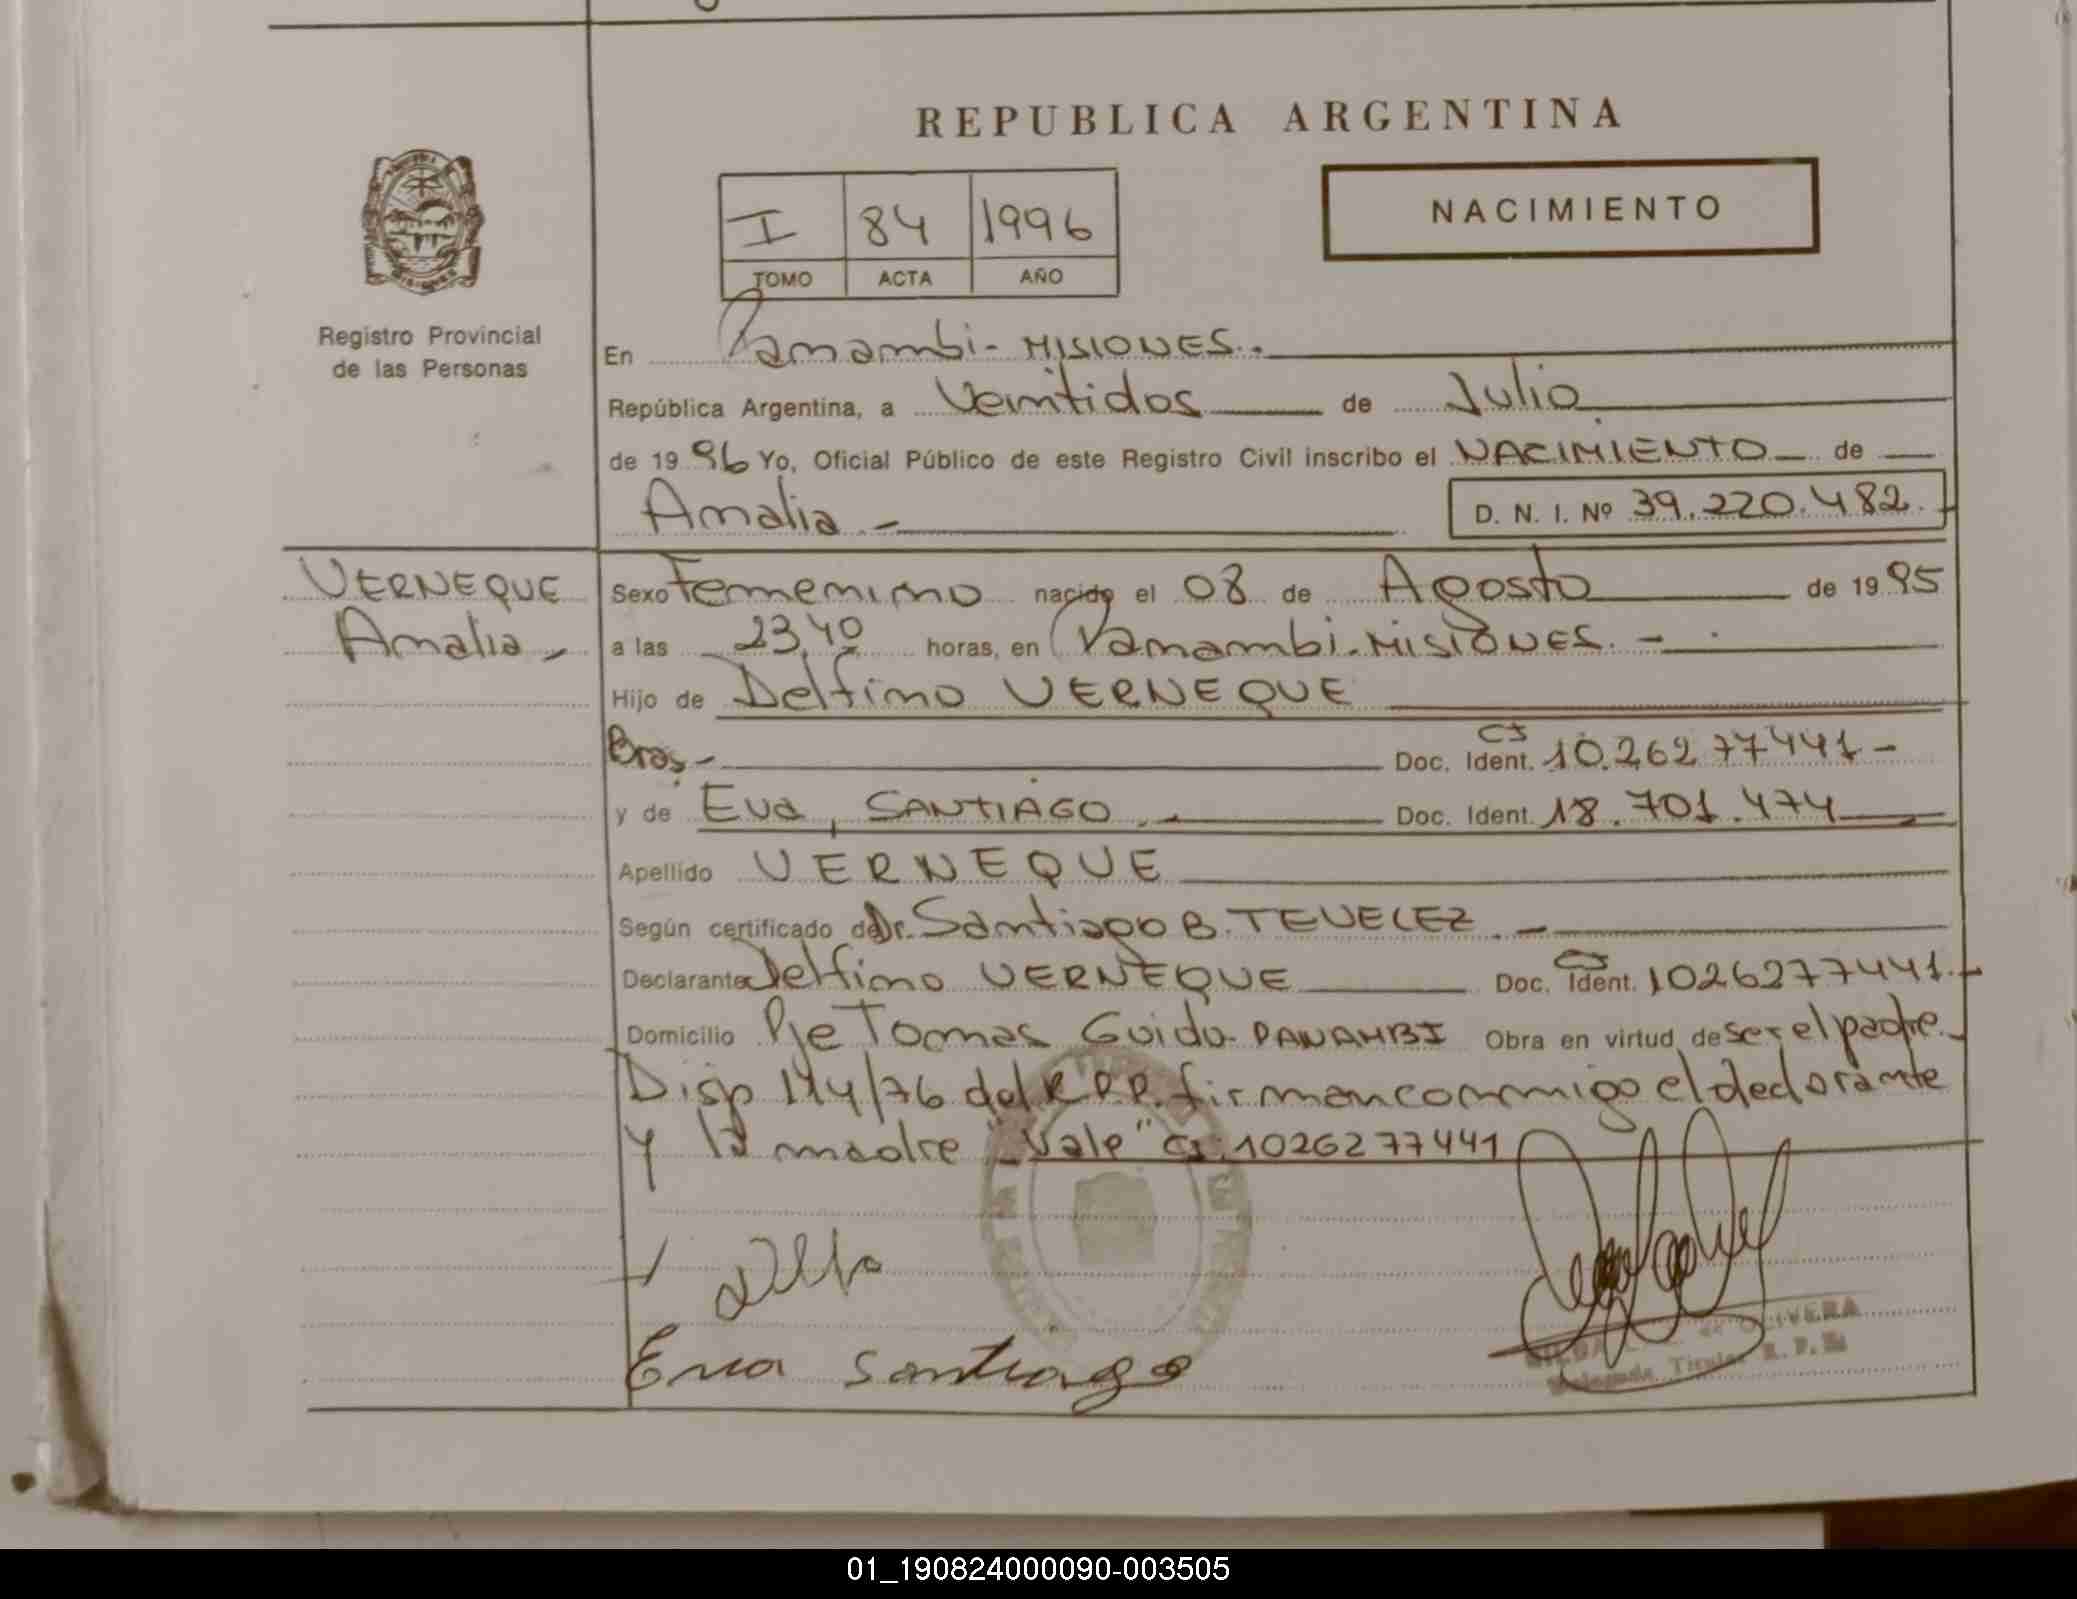 REPUBLICA ARGENTINA
NACIMIENTO
I 84 1996
TOMO ACTA AÑO
Registro Provincial
de las Personas
En Panambi- MISIONES.
República Argentina, a Veintidos de Julio
de 19 96 Yo, Oficial Público de este Registro Civil inscribo el NACIMIENTO de
Amalia - D. N. I. Nº 39.220.482.
VERNEQUE
Amalia -
Sexo Femenino nacido el 08 de Agosto de 19 95
a las 23,40 horas, en Panambi-MISIONES. -
Hijo de Delfino VERNEQUE
Bras- Doc. Ident. CI 10.262 77441-
y de Eva, SANTIAGO. - Doc. Ident. 18.701.474
Apellido VERNEQUE
Según certificado de Dr. Santiago B. TEVELEZ. -
Declarante Delfino VERNEQUE Doc. Ident. CI 1026277441.-
Domicilio Pje Tomas Guido- PANAMBI Obra en virtud de ser el padre.-
Disp 114/76 del R.P.P. firman conmigo el declarante
y la madre "Vale" CI: 10262 77441
Eva Santiago
de OLIVERA
Titular R. P.
01_190824000090-003505